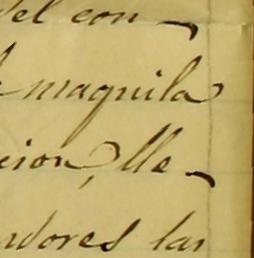 del con-
maquila
cion, lle-
adores las